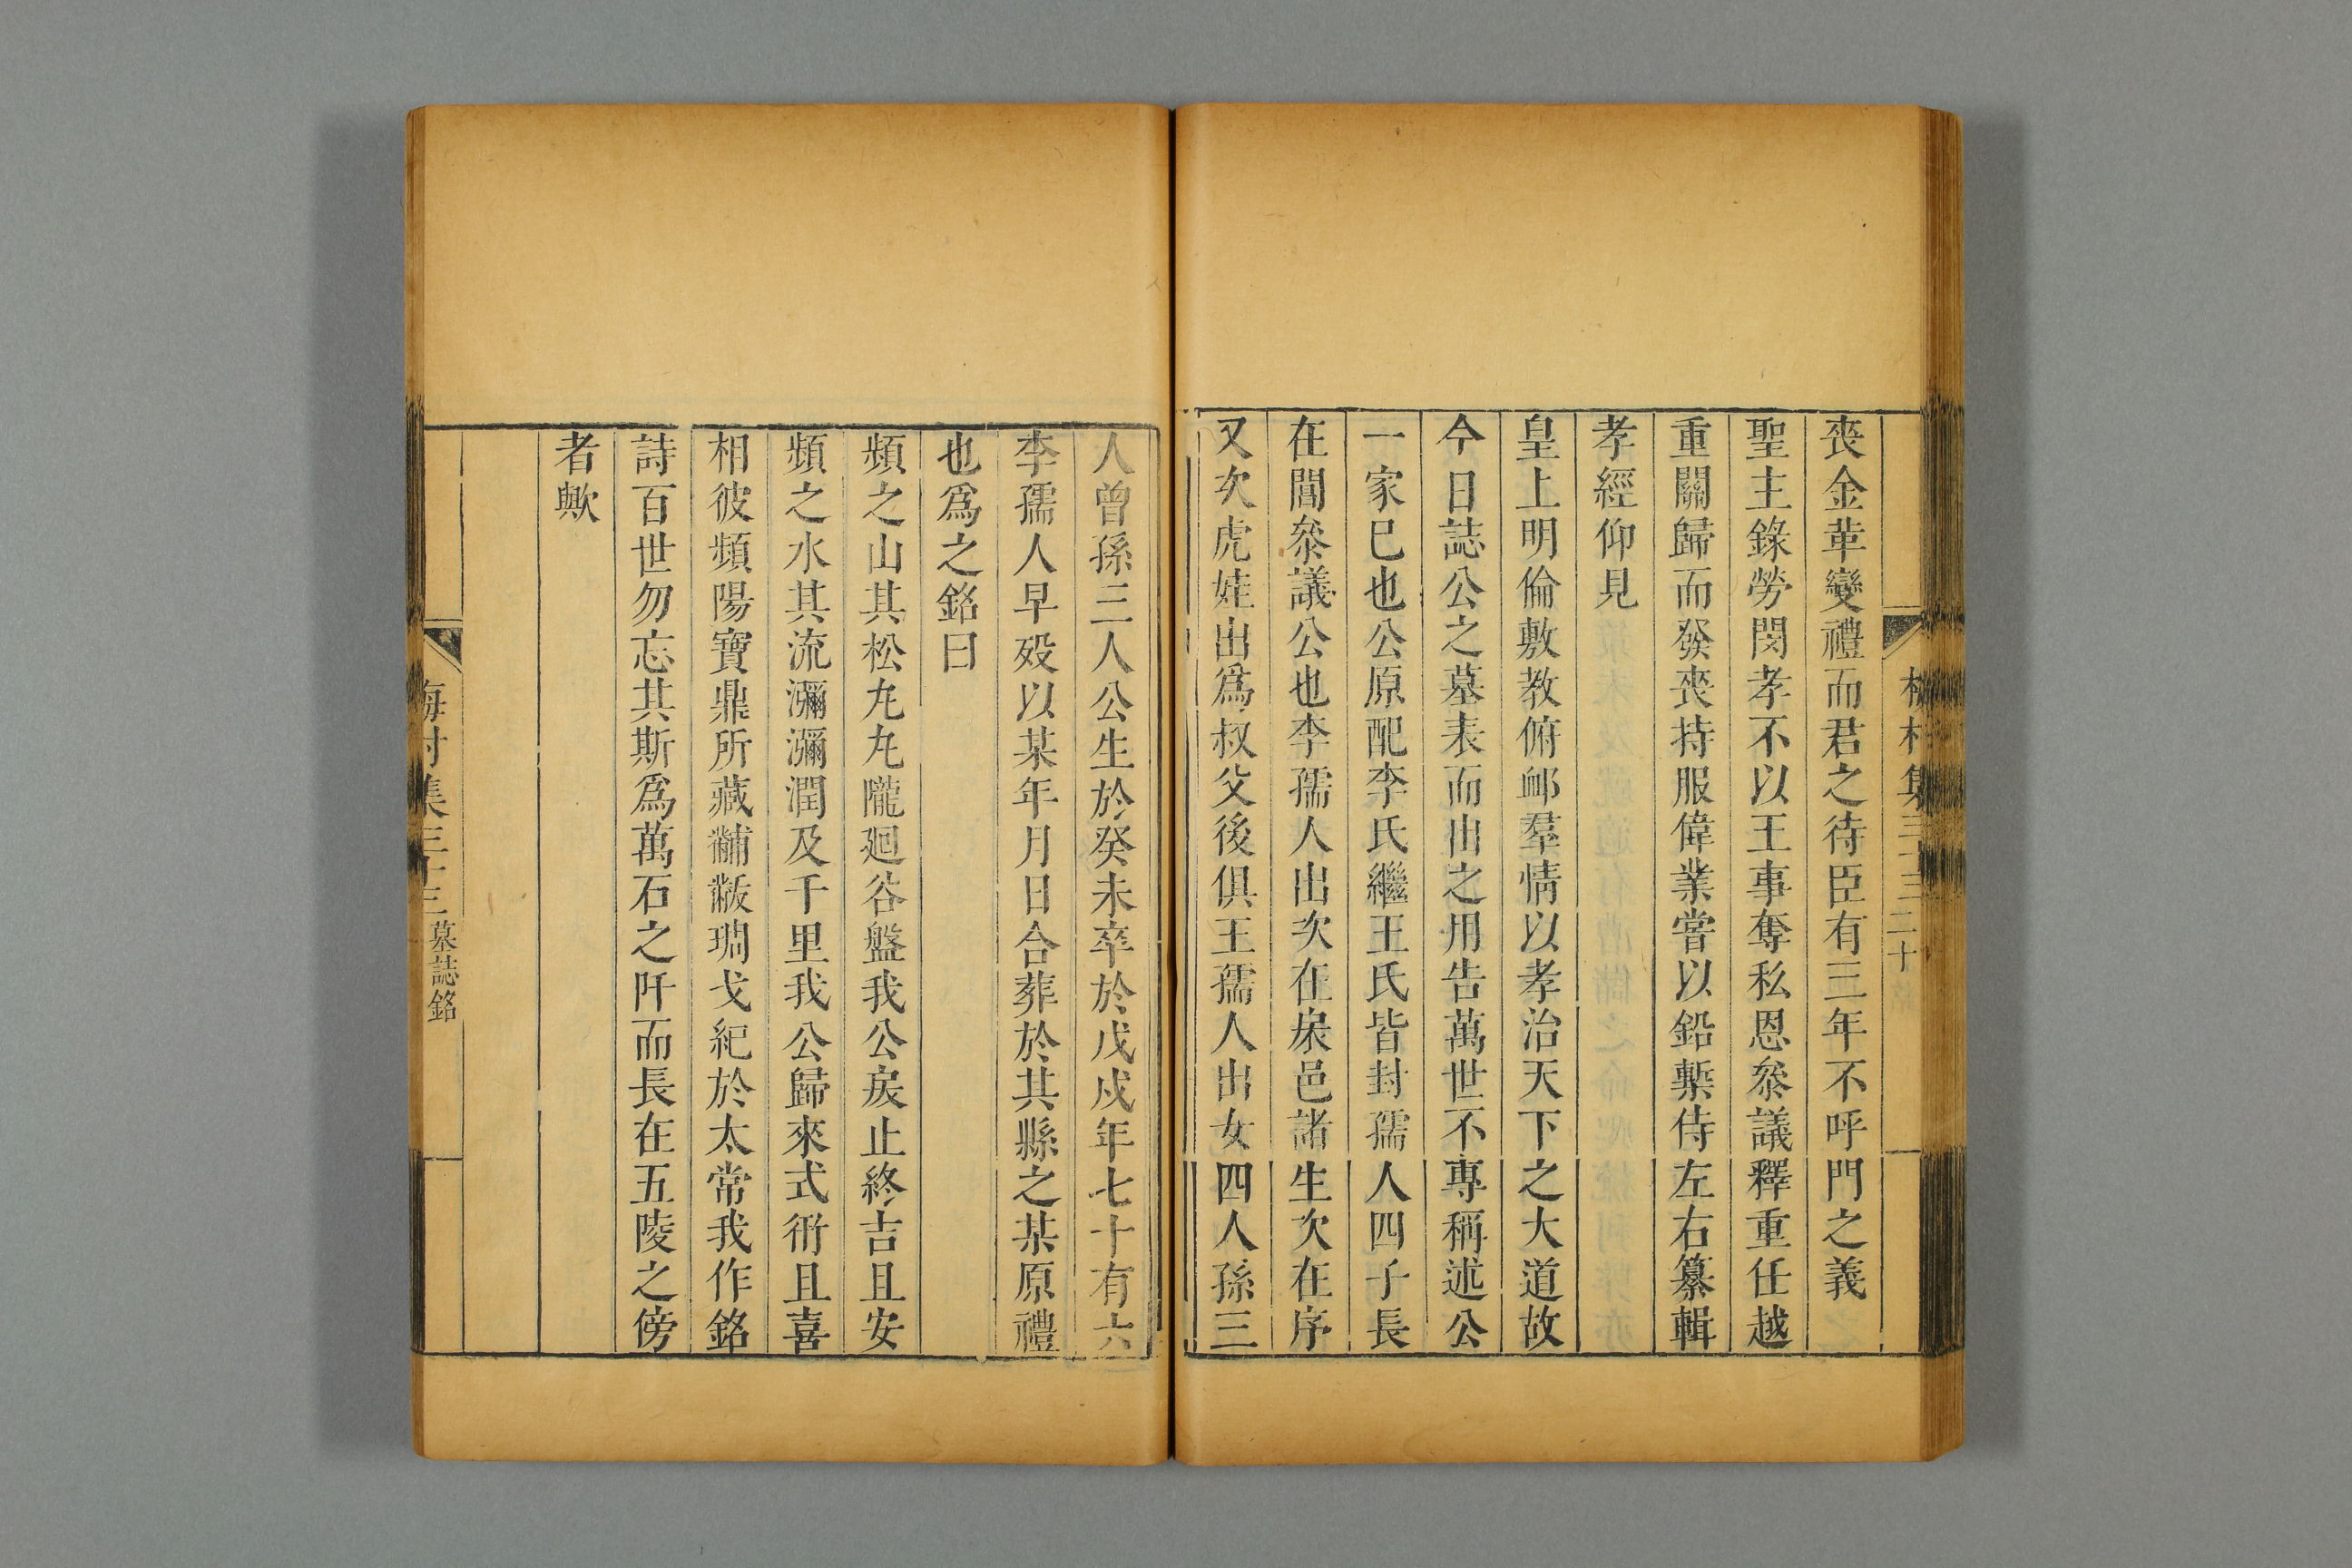 喪金革變禮而君之待臣有三年不呼門之義
聖主錄勞閔孝不以王事奪私恩叅議釋重任越
重關歸而發喪持服偉業嘗以鉛槧侍左右纂輯
孝經仰見
皇上明倫敷教俯䘏羣情以孝治天下之大道故
今日誌公之墓表而出之用告萬世不專稱述公
一家巳也公原配李氏繼王氏皆封孺人四子長
在閶叅議公也李孺人出次在扆邑諸生次在序
又次虎娃出爲叔父後俱王孺人出女四人孫三
人曾孫三人公生於癸未卒於戊戍年七十有六
李孺人早歿以某年月日合葬於其縣之某原禮
也爲之銘曰
頻之山其松丸丸隴廻谷盤我公戾止終吉且安
頻之水其流瀰瀰潤及千里我公歸來式衎且喜
相彼頻陽寶鼎所藏黼黻琱戈紀於太常我作銘
詩百世勿忘其斯爲萬石之阡而長在五陵之傍
者歟
梅村集三十三 二十
梅村集三十三 墓誌銘